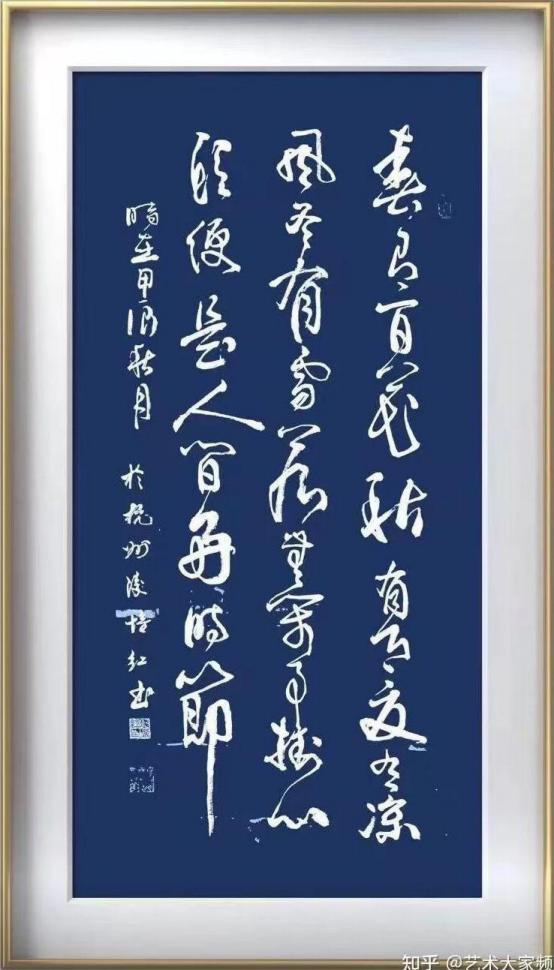 春有百花秋有月夏有凉
風冬有雪若無閑事掛心
頭便是人间好时節
時在甲辰秋月 於杭州 红书
知乎 @艺术大家频